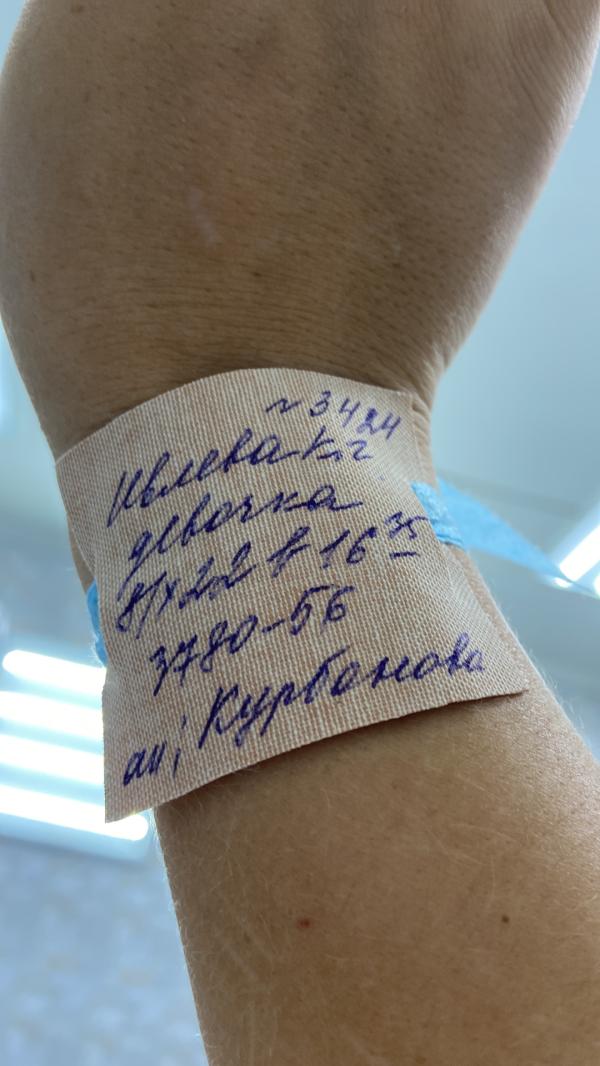 № 3424
Ивлева К. г
девочка
8/X 22 в 16 35
3780-56
ак; Курбанова